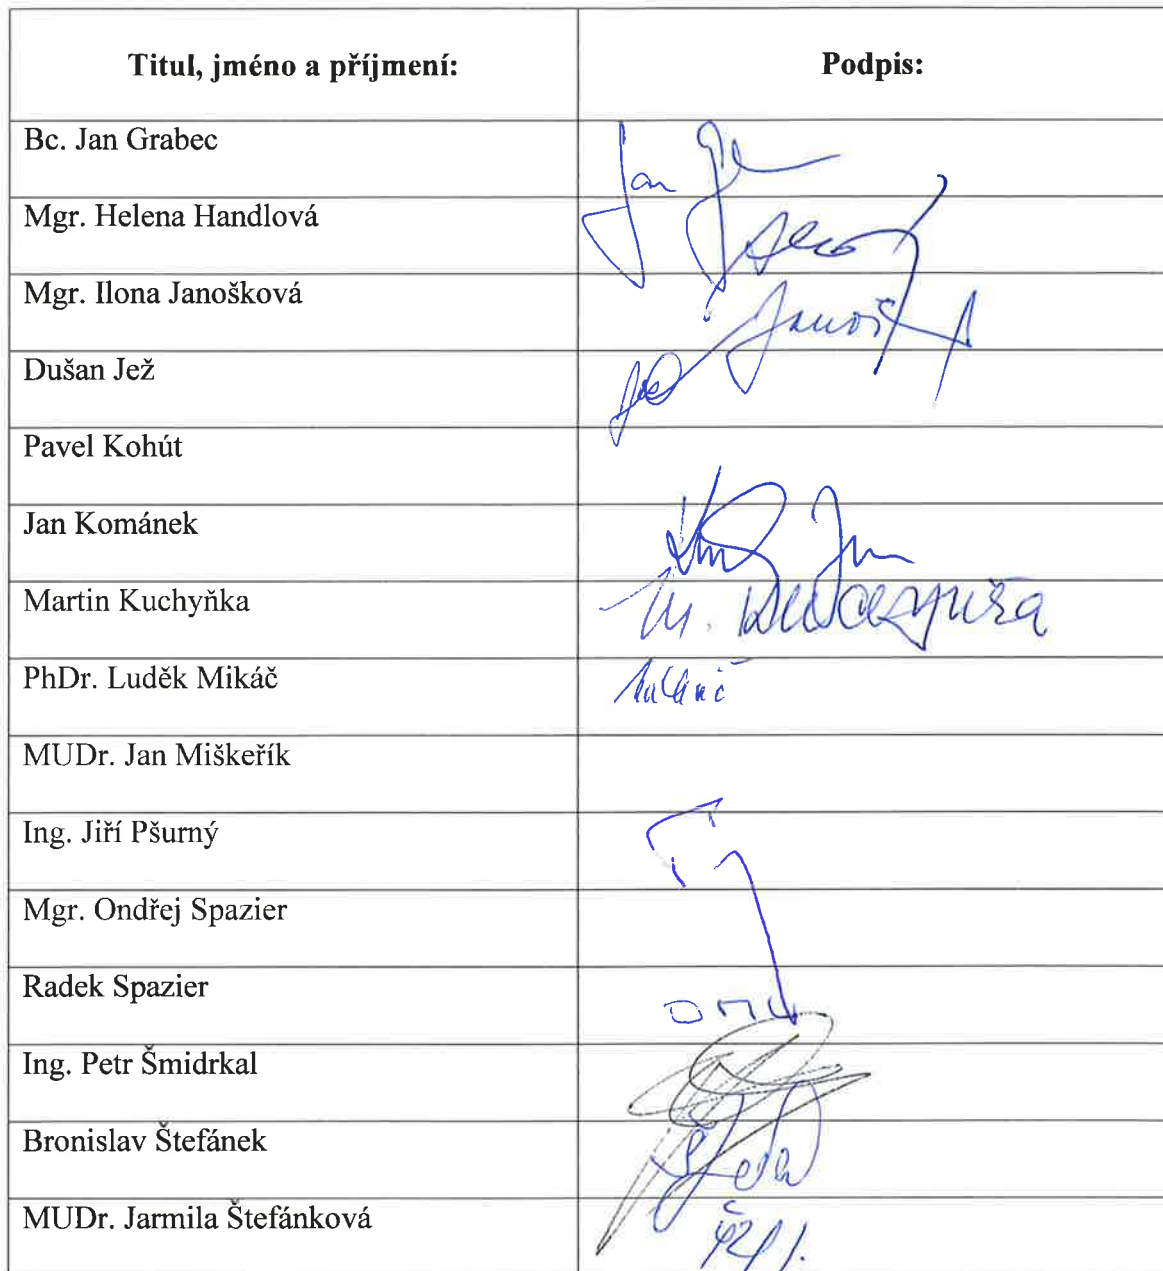 Titul, jméno a příjmení: Podpis:
Bc. Jan Grabec Jan
Mgr. Helena Handlová
Mgr. Ilona Janošková
Dušan Jež
Pavel Kohút
Jan Kománek
Martin Kuchyňka M.
PhDr. Luděk Mikáč
MUDr. Jan Miškeřík
Ing. Jiří Pšurný
Mgr. Ondřej Spazier
Radek Spazier
Ing. Petr Šmidrkal
Bronislav Štefánek
MUDr. Jarmila Štefánková